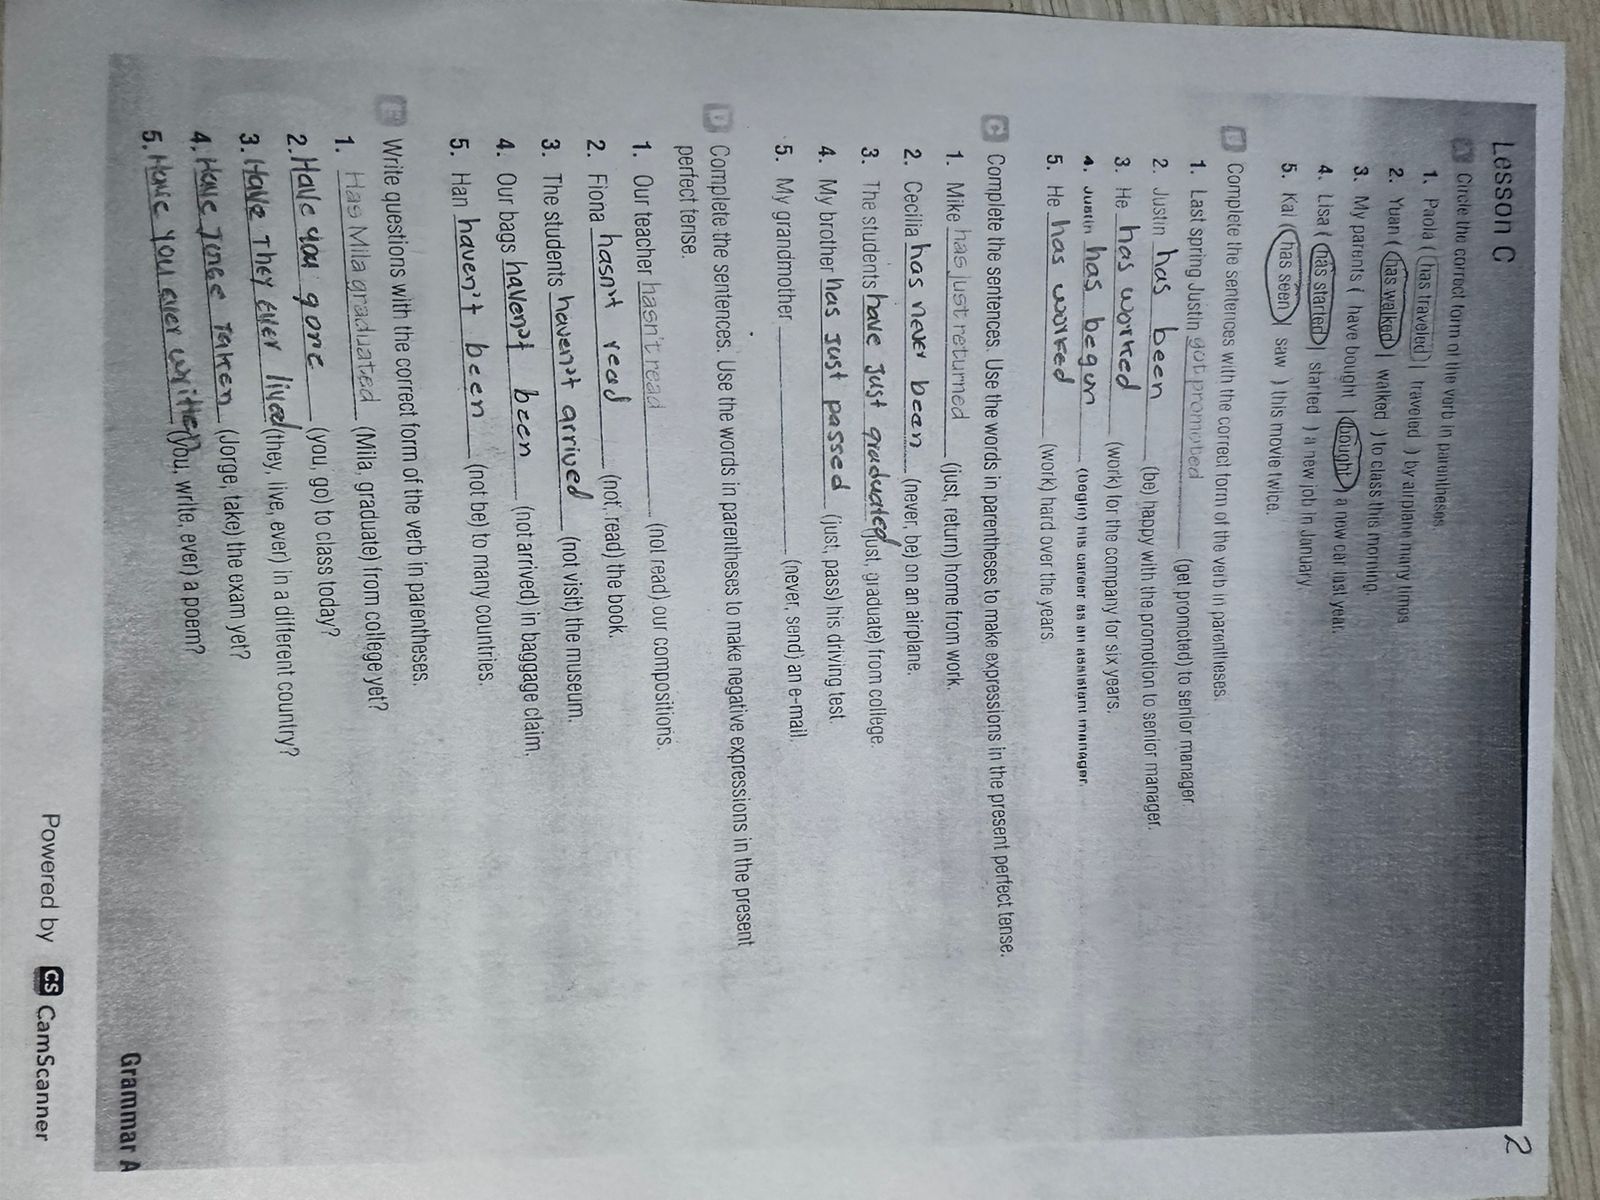 2
Lesson C
A Circle the correct form of the verb in parentheses.
1. Paola ( has traveled | traveled ) by airplane many times
2. Yuan ( has walked | walked ) to class this morning.
3. My parents ( have bought | bought ) a new car last year.
4. Lisa ( has started | started ) a new job in January.
5. Kai ( has seen | saw ) this movie twice.
B Complete the sentences with the correct form of the verb in parentheses.
1. Last spring Justin got promoted (get promoted) to senior manager.
2. Justin has been (be) happy with the promotion to senior manager.
3. He has worked (work) for the company for six years.
4. Justin has begun (begin) his career as an assistant manager.
5. He has worked (work) hard over the years.
C Complete the sentences. Use the words in parentheses to make expressions in the present perfect tense.
1. Mike has just returned (just, return) home from work.
2. Cecilia has never been (never, be) on an airplane.
3. The students have just graduated (just, graduate) from college.
4. My brother has just passed (just, pass) his driving test.
5. My grandmother (never, send) an e-mail.
D Complete the sentences. Use the words in parentheses to make negative expressions in the present
perfect tense.
1. Our teacher hasn't read (not read) our compositions.
2. Fiona hasn't read (not, read) the book.
3. The students haven't arrived (not visit) the museum.
4. Our bags haven't been (not arrived) in baggage claim.
5. Han haven't been (not be) to many countries.
E Write questions with the correct form of the verb in parentheses.
1. Has Mila graduated (Mila, graduate) from college yet?
2. Have you gone (you, go) to class today?
3. Have They Ever lived (they, live, ever) in a different country?
4. Have Jorge Taken (Jorge, take) the exam yet?
5. Have you ever written (you, write, ever) a poem?
Grammar A
Powered by CS CamScanner